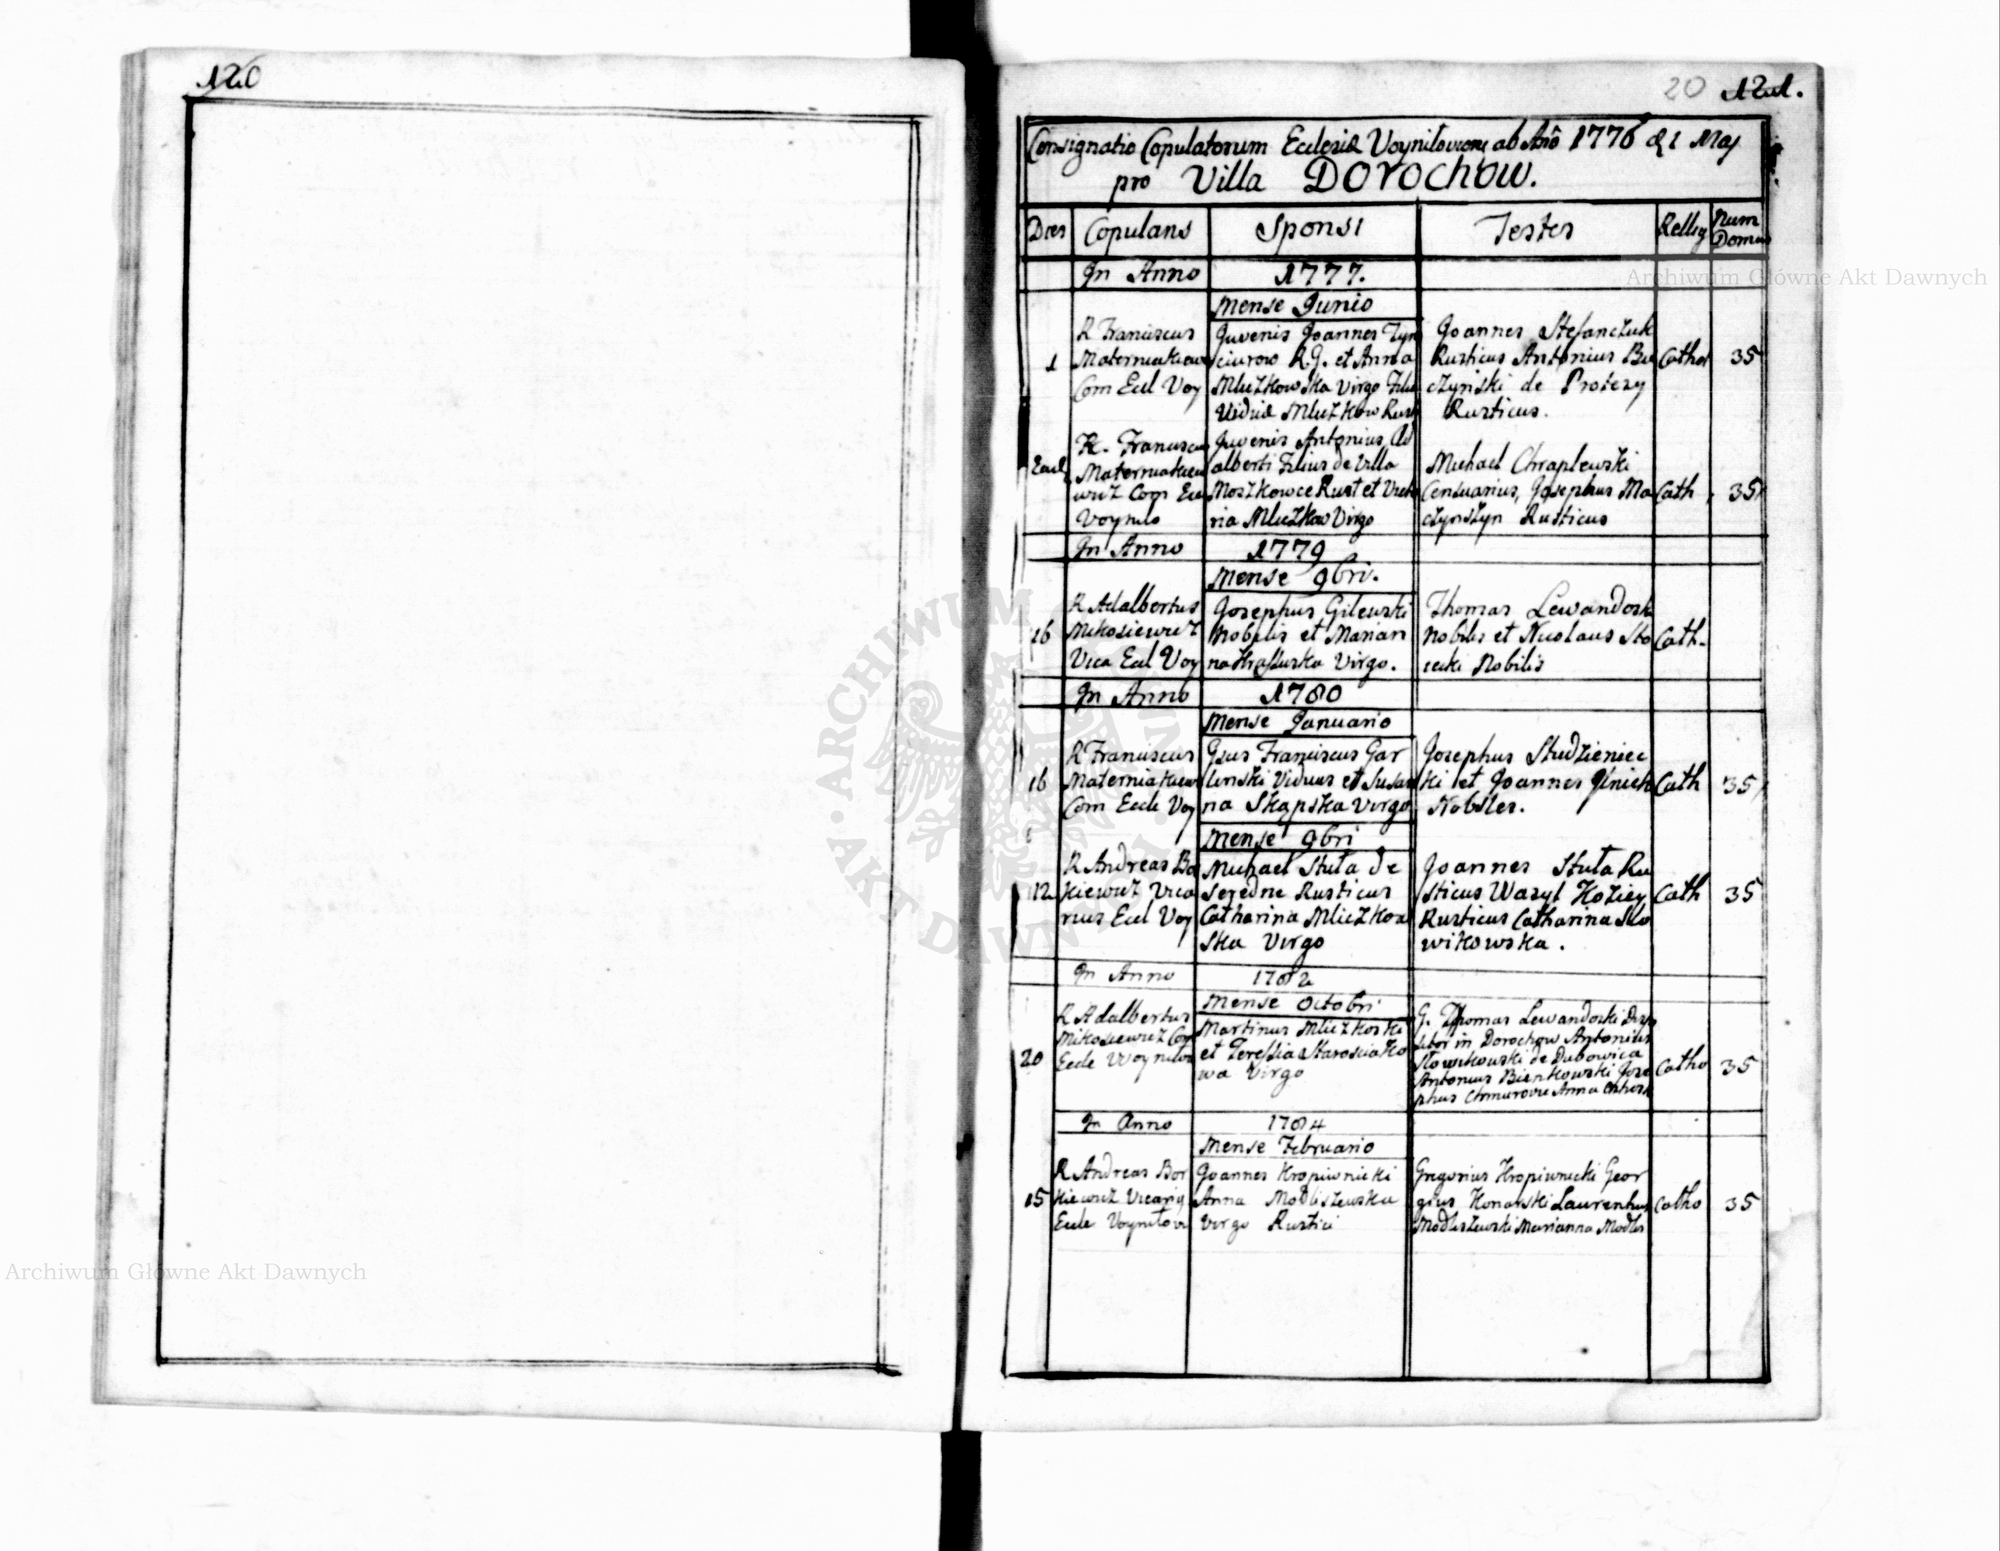 120
20 121.
Consignatio Copulatorum Ecclesiæ Voyniloviens ab Anô 1776 d 1 Maj
pro Villa DOROCHOW.
Dies Copulans Sponsi Testes Rellig Num Domus
In Anno 1777.
Mense Junio
1
R Franciscus
Materniakiew
Com Eccl Voy
Juvenis Joannes Tym
ciurow R.J. et Anna
Mliczkowska Virgo Filia
Viduæ Mliczkow Rust
Joannes Stefanczuk
Rusticus Antonius Bu
czynski de Protesy
Rusticus.
Cathol
35
Ead
R. Franciscus
Materniakie
wicz Com Ecc
Voynilo
Juvenis Antonius Ad
alberti Filius de Villa
Moszkowce Rust et Victo
ria Mliczkow Virgo
Michael Chraplewski
Censuarius, Josephus Ma
czynszyn Rusticus
Cath
35
In Anno 1779
Mense 9bri.
16
R Adalbertus
Mikosiewicz
Vica Eccl Voy
Josephus Gilewski
Nobilis et Marian
na Virgo.
Thomas Lewandosk
Nobilis et Nicolaus Sto
iecki Nobilis
Cath.
In Anno 1780
Mense Januario
16
R Franciscus
Materniakiew
Com Eccle Voy
Gsus Franciscus Gar
linski Viduus et Susan
na Skąpska Virgo
Josephus Studzieniec
ki et Joannes
Nobiles.
Cath
35
Mense 9bri
12
R Andreas Bo
kiewicz Vica
rius Eccl Voy
Michael Stuta de
Seredne Rusticus
Catharina Mliczkow
ska Virgo
Joannes Stuta Ru
sticus Wasyl Koziey
Rusticus Catharina Slo
wikowska.
Cath
35
In Anno 1782
Mense Octobri
20
R Adalbertus
Mikosiewicz Com
Eccle Woynilow
Martinus Mliczkoski
et Teressia Starosciako
wa Virgo
G. Thomas Lewandoski Disp
sitor in Dorochow Antonius
Slowikowski de Dubowica
Antonius Bienkowski Jose
phus Chmurovic Anna
Catho
35
In Anno 1784
Mense Februario
15
R Andreas Bor
kiewicz Vicarių
Eccle Voynilov
Joannes Kropiwnicki
Anna Modliszewska
Virgo Rustici
Gregorius Kropiwnicki Geor
gius Konarski Laurentius
Modliszewski Marianna Modlis
Catho
35
Archiwum Główne Akt Dawnych
Archiwum Główne Akt Dawnych